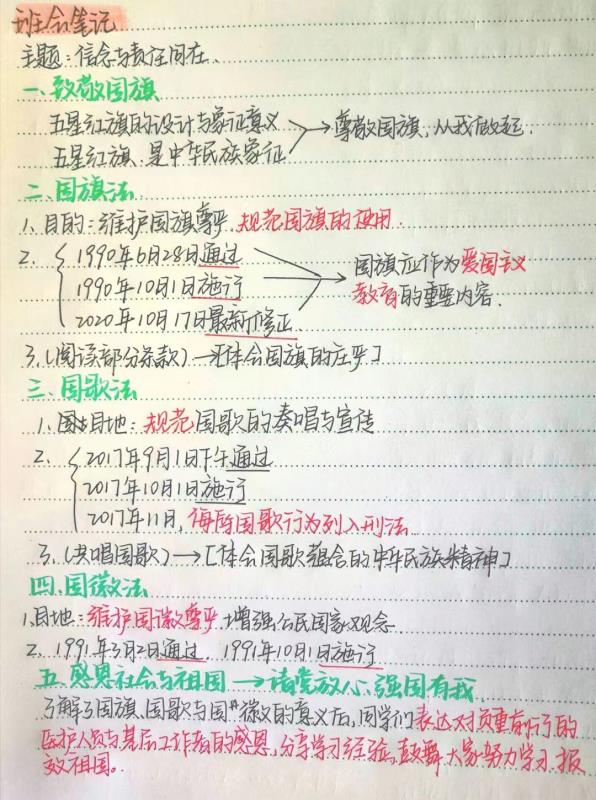 班会笔记
主题：信念与责任同在.
一、致敬国旗
五星红旗的设计与象征意义
五星红旗.是中华民族象征
→尊敬国旗,从我做起.
二、国旗法
1、目的：维护国旗尊严,规范国旗的使用.
2、{1990年6月28日通过
1990年10月1日施行
2020年10月17日最新修正.
→国旗应作为爱国主义
教育的重要内容.
3、(阅读部分条款)—[体会国旗的庄严]
三、国歌法
1、目地：规范国歌的奏唱与宣传
2、{2017年9月1日下午通过
2017年10月1日施行
2017年11月,侮辱国歌行为列入刑法.
3、(共唱国歌)→[体会国歌蕴含的中华民族精神]
四.国徽法
1.目地：维护国徽尊严,增强公民国家观念
2、1991年3月2日通过 1991年10月1日施行
五.感恩社会与祖国→请党放心,强国有我.
了解了国旗、国歌与国徽的意义后,同学们表达对负重前行的
医护人员与基层工作者的感恩,分享学习经验,鼓舞大家努力学习,报
效祖国。